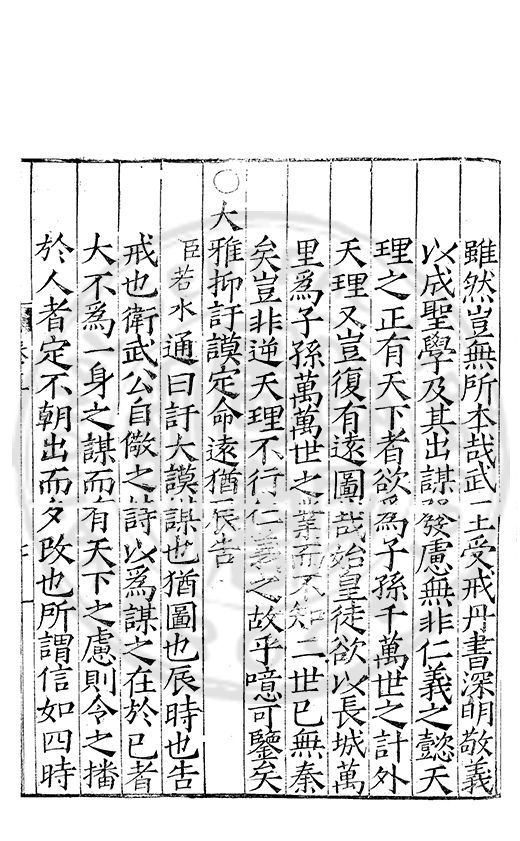 雖然豈無所本哉武王受戒丹書深明敬義
以成聖學及其出謀發慮無非仁義之懿天
理之正有天下者欲爲子孫千萬世之計外
天理又豈復有遠圖哉始皇徒欲以長城萬
里爲子孫萬萬世之業而不知二世已無秦
矣豈非逆天理不行仁義之故乎噫可鑒矣
○大雅抑訏謨定命遠猶辰告
臣若水通曰訏大謨謀也猶圖也辰時也告
戒也衛武公自儆之詩以爲謀之在於已者
大不爲一身之謀而有天下之慮則令之播
於人者定不朝出而夕改也所謂信如四時